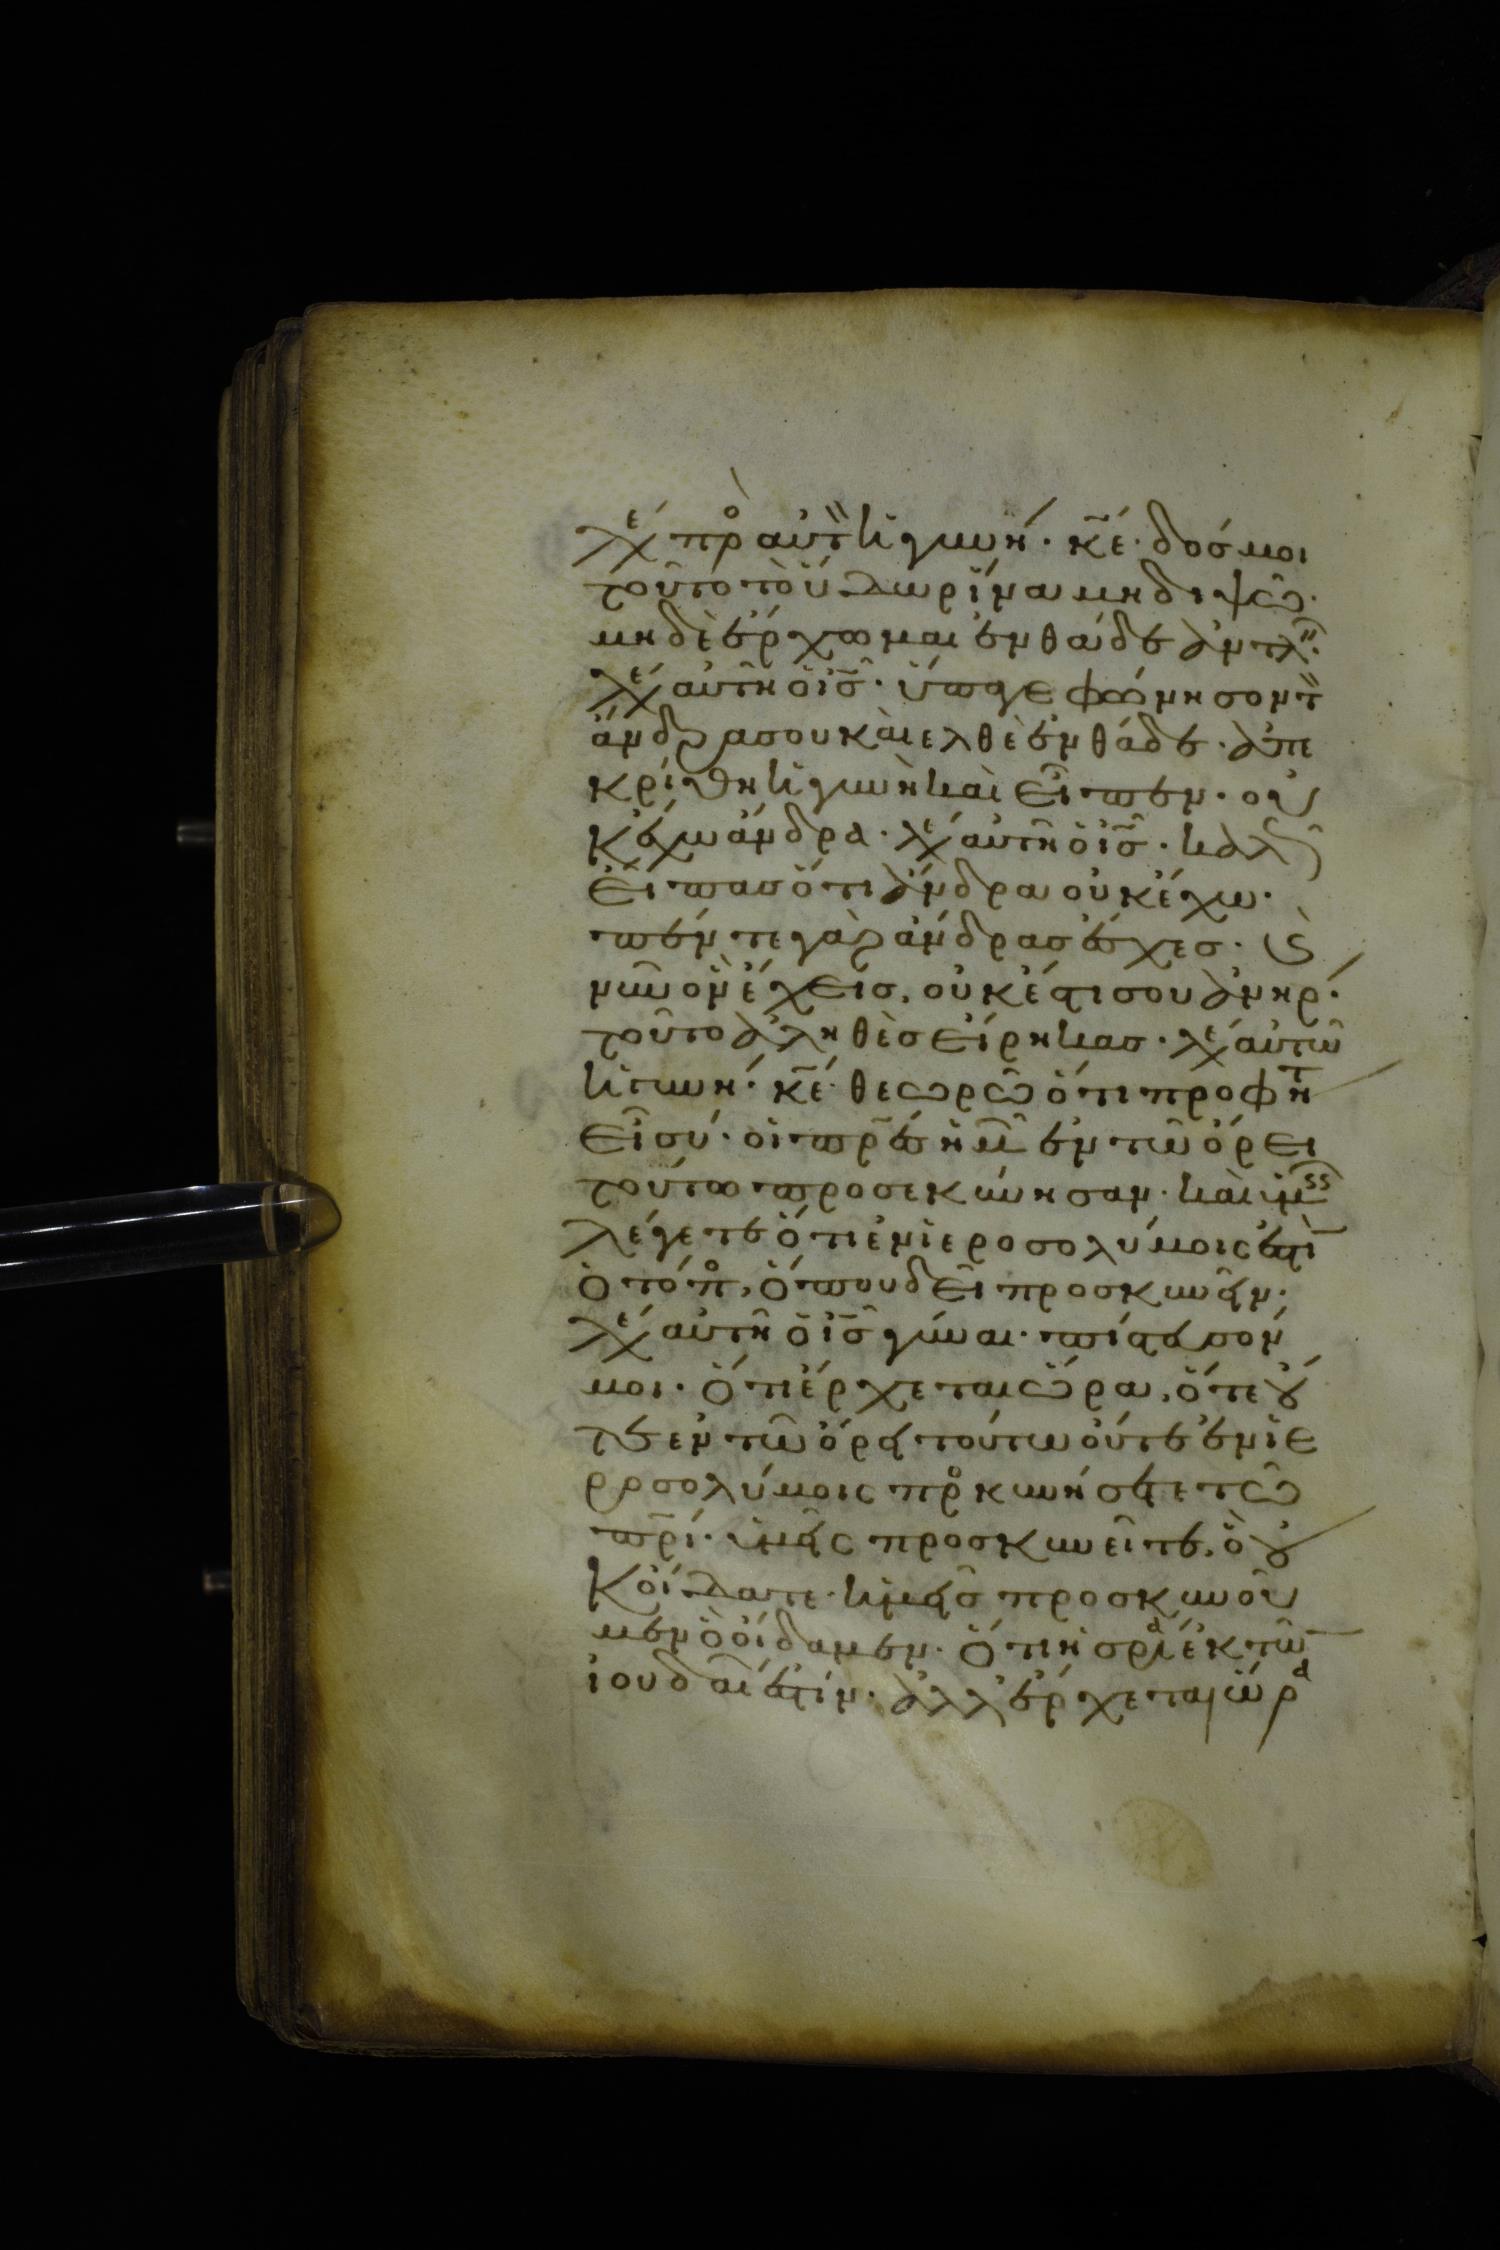 λέ πρ αυτ ἡ γυνή· κ̅ε̅· δόσ μοι
τοῦτο τὸ ὕδωρ ἵνα μη διψῶ·
μηδὲ ἔρχωμαι ἐνθάδε ἀντλ·
λέ αὐτῆ ὁ ι̅σ̅· ὕπαγε φώνησον τ
ἄνδρα σου καὶ ελθὲ ἐνθάδε· ἀπε
κρίθη ἡ γυνὴ καὶ εἶπεν· οὐ
κ ἔχω ἄνδρα· λέ αὐτῆ ὁ ι̅σ̅· καλ
εἶπασ ὅτι ἄνδρα οὐκ ἔχω·
πέντε γὰρ ἄνδρασ ἔσχες· καὶ
νῦν ὃν ἔχεισ, οὐκ έστι σου ἀνήρ·
τοῦτο ἀληθὲσ εἴρηκασ· λέ αὐτῶ
ἡ γυνή· κ̅ε̅· θεωρῶ ὅτι προφήτ
εἶ σύ· οἱ π̅ρ̅ε̅σ ἡμ ἐν τῶ ὄρει
τούτω προσεκύνησαν· καὶ ὑμ
λέγετε ὅτι ἐν ἱεροσολύμοις ἐστὶ
ὁ τόπ, ὅπου δεῖ προσκυνεῖν·
λέ αὐτῆ ὁ ι̅σ̅ γύναι· πίστευσόν
μοι· ὅτι ἔρχεται ὥρα, ὅτε οὔ
τε ἐν τῶ ὄρει τούτω οὔτε ἐν ἱε
ροσολύμοις πρκυνήσετε τῶ
π̅ρ̅ι̅· ὑμεῖς προσκυνεῖτε, ὃ οὐ
κ οἴδατε· ἡμεῖσ προσκυνοῦ
μεν ὃ οἴδαμεν· ὅτι ἡ σρια ἐκ τῶ
ἰουδαί ἐστίν· ἀλλ ἔρχεται ὥρα